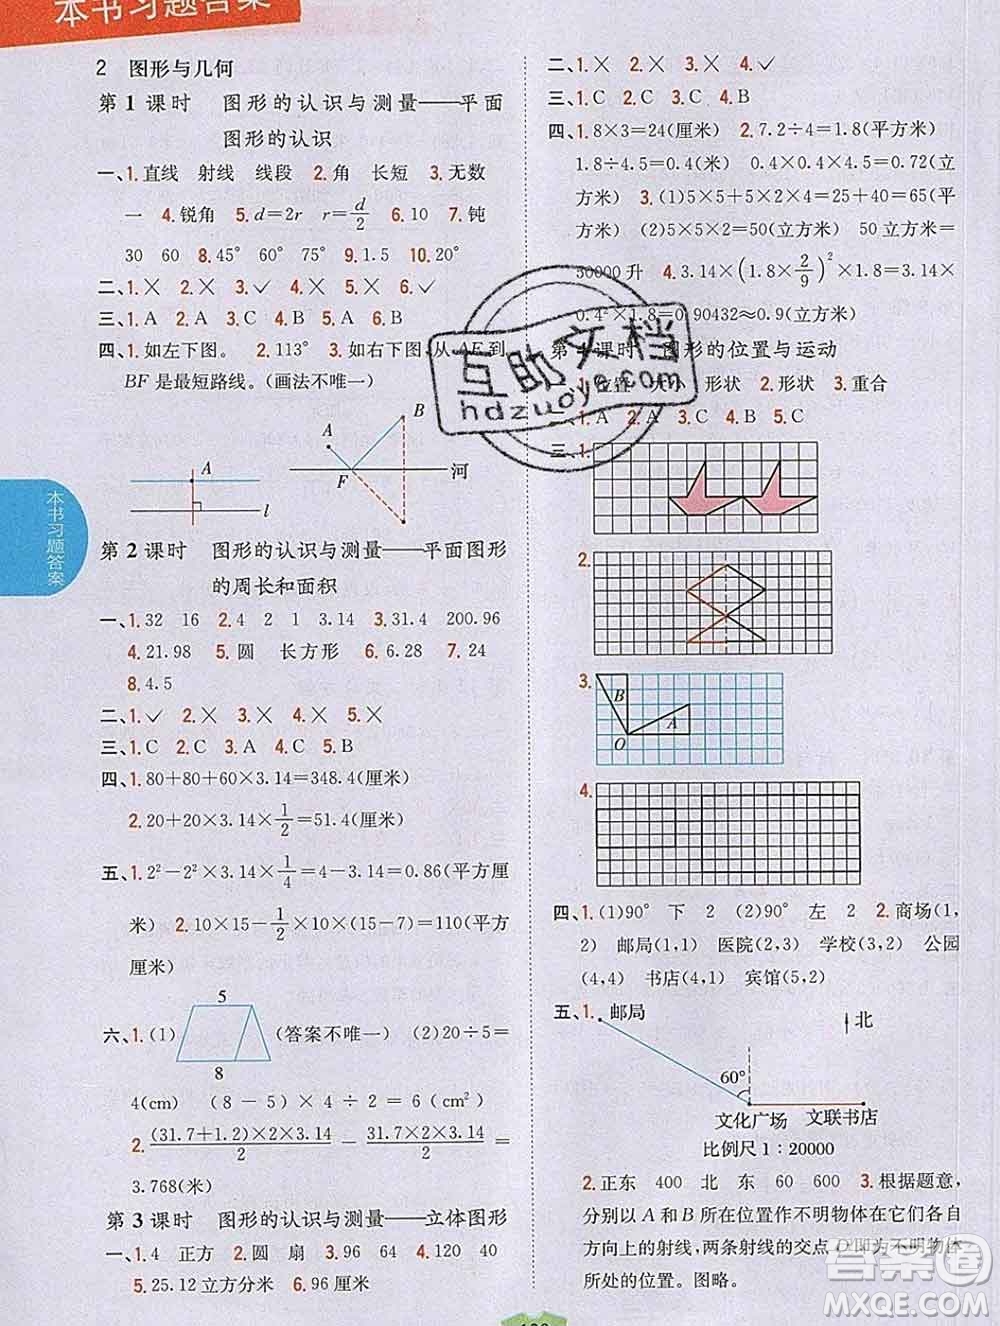 本书习题答案
2 图形与几何
第1课时 图形的认识与测量——平面
图形的认识
一、1.直线 射线 线段 2.角 长短 3.无数
一 4.锐角 5.d=2r r=d/2 6.10 7.钝
30 60 8.45° 60° 75° 9.1.5
二、1.× 2.× 3.✓ 4.× 5.× 6.✓
三、1.A 2.A 3.B 4.A 5.B
四、1.如左下图。 2.113° 3.如右下图,从AF到
BF是最短路线。(画法不唯一)
A
l
A
B
F
河
第2课时 图形的认识与测量——平面图形
的周长和面积
一、1.32 16 2.4 2 1 3.14 3.31.4 200.96
4.21.98 5.圆 长方形 6.6.28 7.24
8.4.5
二、1.✓ 2.× 3.× 4.× 5.×
三、1.C 2.C 3.A 4.C 5.B
四、1.80+80+60×3.14=348.4(厘米)
2.20+20×3.14×1/2=51.4(厘米)
五、1.2²-2²×3.14×1/4=4-3.14=0.86(平方厘
米) 2.10×15-1/2×10×(15-7)=110(平方
厘米)
六、1.(1) 5 8 (答案不唯一) (2)20÷5=
4(cm) (8-5)×4÷2=6(cm²)
2.(31.7+1.2)×2×3.14/2-31.7×2×3.14/2=
3.768(米)
第3课时 图形的认识与测量——立体图形
一、1.4 正方 2.圆 扇 3.96 64 4.120 40
5.25.12立方分米 6.96厘米
二、1.× 2.× 3.× 4.✓
三、1.C 2.C 3.C 4.B
四、1.8×3=24(厘米) 2.7.2÷4=1.8(平方米)
1.8÷4.5=0.4(米) 0.4×0.4×4.5=0.72(立
方米) 3.(1)5×5+5×2×4=25+40=65(平
方米) (2)5×5×2=50(立方米) 50立方米=
50000升 4.3.14×(1.8×2/9)²×1.8=3.14×
0.4²×1.8=0.90432≈0.9(立方米)
第4课时 图形的位置与运动
一、1.位置 大小 形状 2.形状 3.重合
二、1.A 2.A 3.C 4.B 5.C
三、1.
2.
3.
B
A
O
4.
四、1.(1)90° 下 2 (2)90° 左 2 2.商场(1,
2) 邮局(1,1) 医院(2,3) 学校(3,2) 公园
(4,4) 书店(4,1) 宾馆(5,2)
五、1. 邮局
北
60°
文化广场 文联书店
比例尺1:20000
2.正东 400 北 东 60 600 3.根据题意,
分别以A和B所在位置作不明物体在它们各自
方向上的射线,两条射线的交点O即为不明物体
所处的位置。图略。
本书习题答案
互助文档
hdzuoye.com
答案圈
MXQE.COM